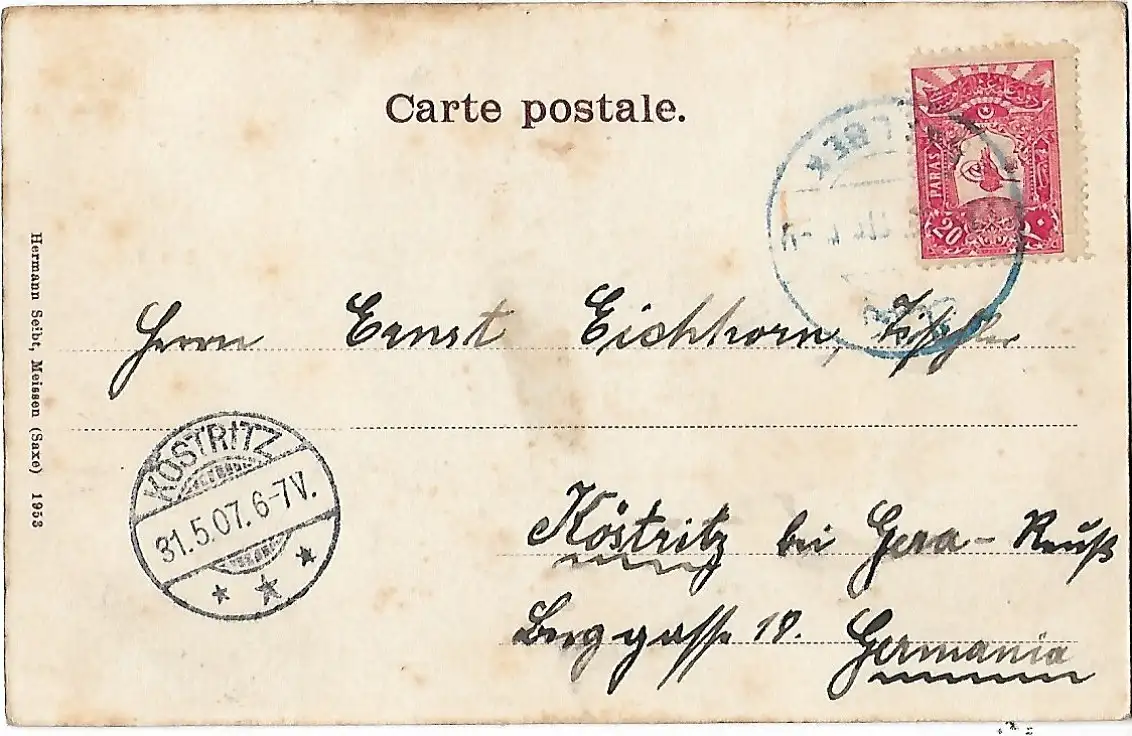 Carte postale.
PARAS
20
٢٠
Herrn Ernst Eichhorn, Tischler
KÖSTRITZ
31.5.07. 6-7V.
Köstritz bei Gera - Reuß
Berggasse 19. Germania
Hermann Seibt, Meissen (Saxe) 1953